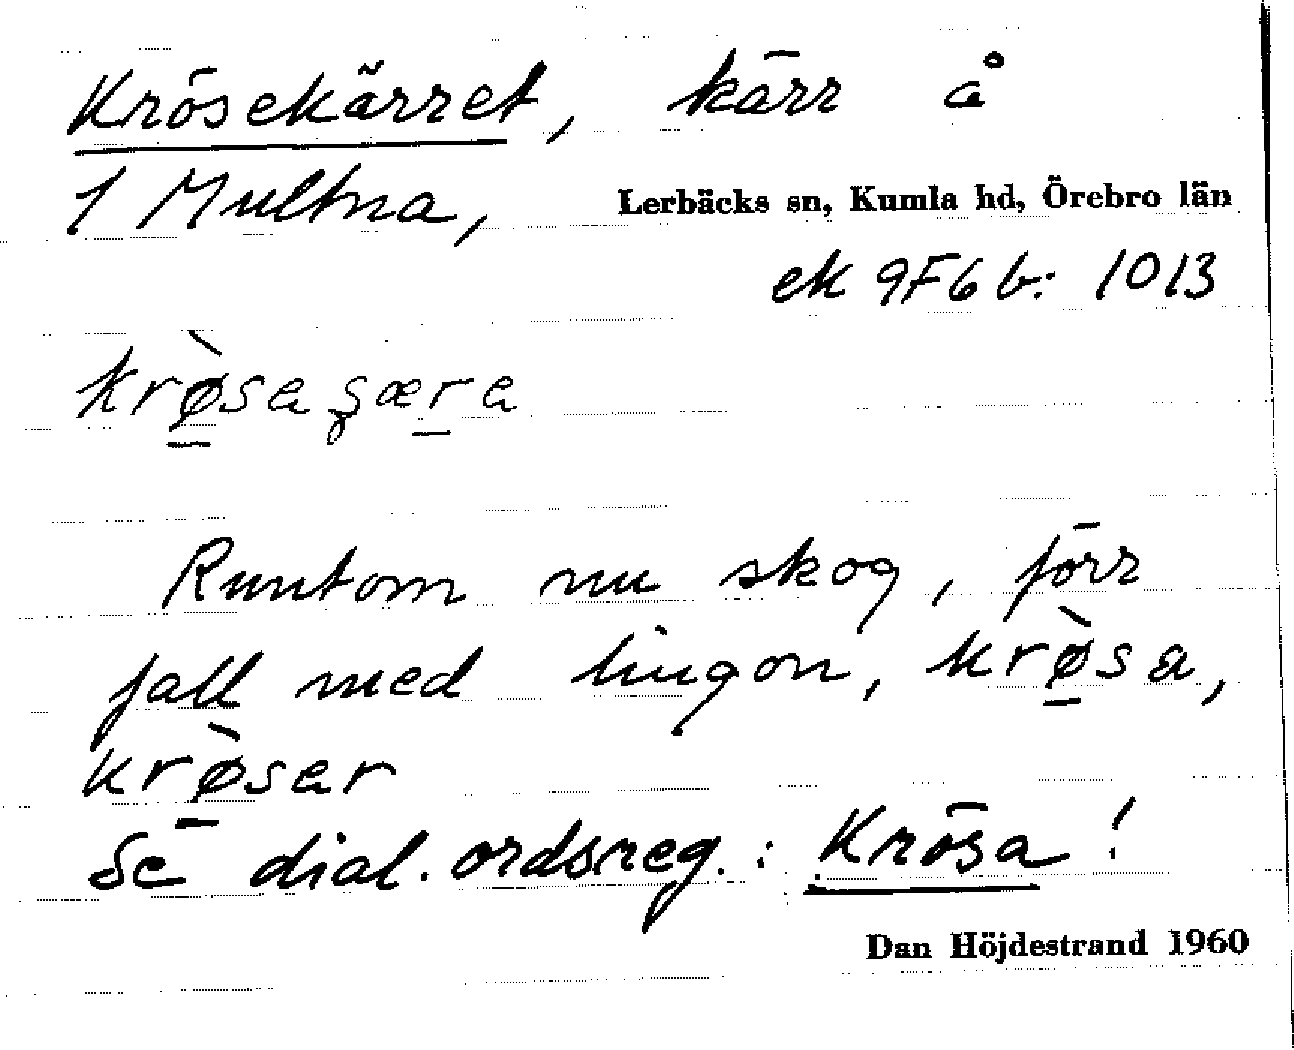 Krösekärret, kärr å
1 Multna, Lerbäcks sn, Kumla hd, Örebro län
ek 9F6b: 1013
krø̀sa ʂæra
Runtom nu skog, förr
fall med lingon, krø̀sa,
krø̀ser
Se dial. ordsreg.: Krösa!
Dan Höjdestrand 1960